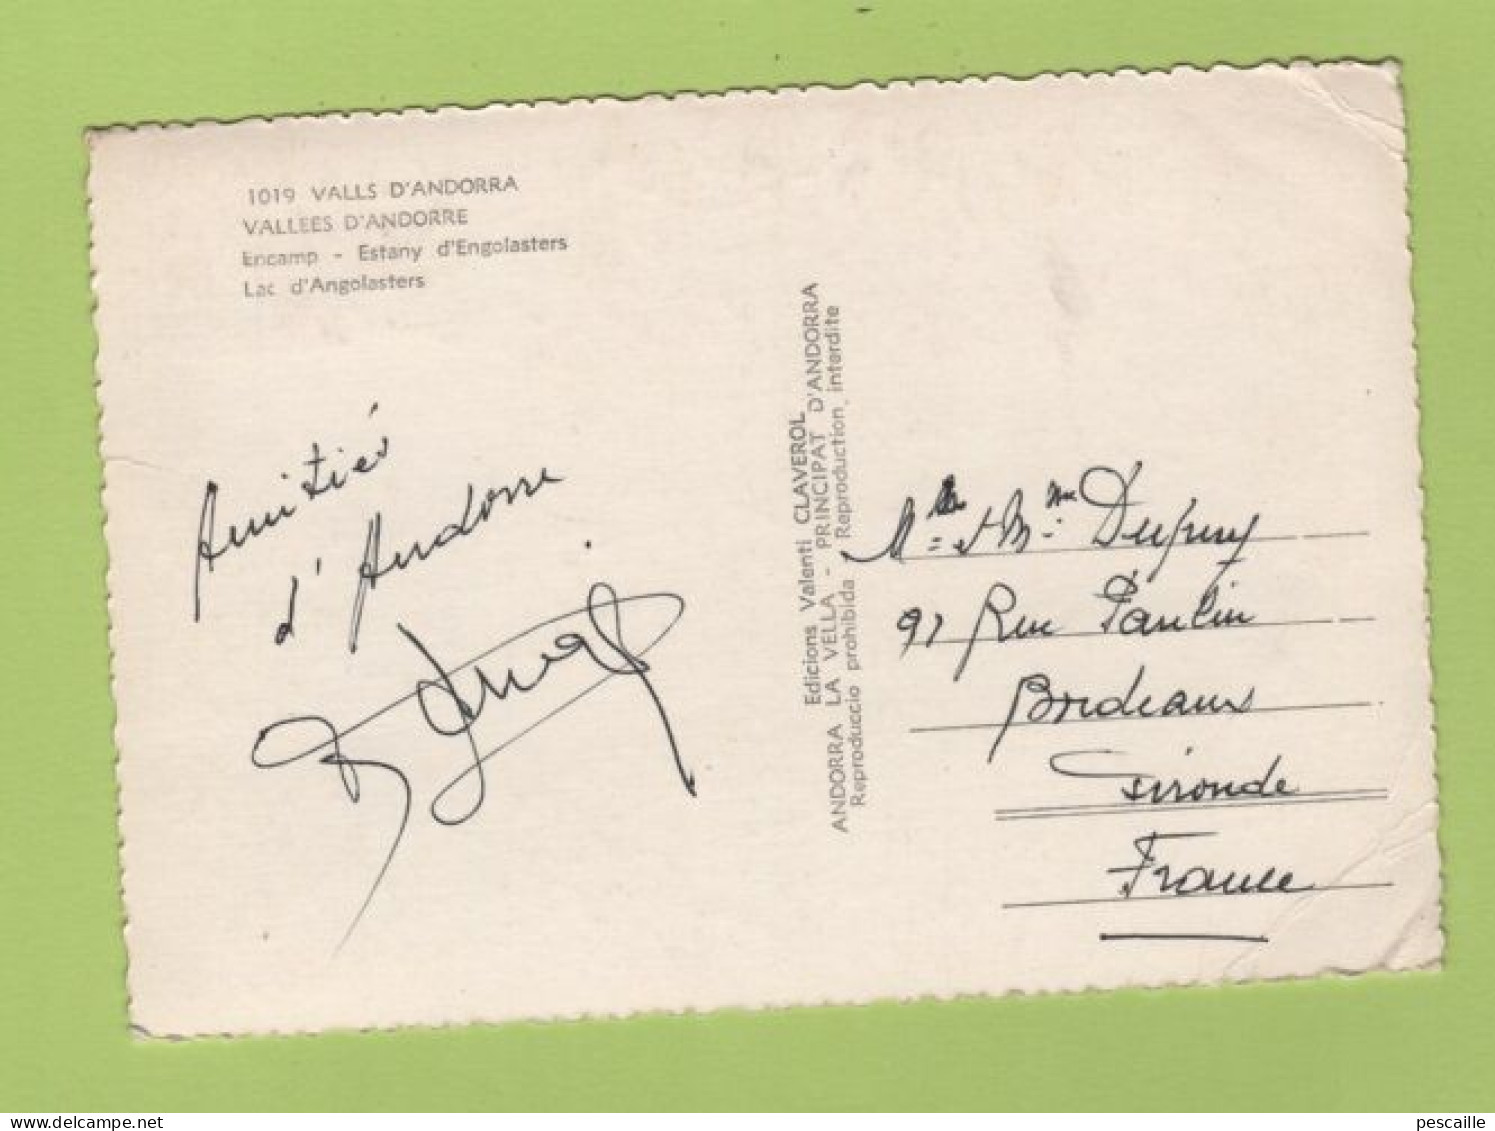 1019 VALLS D'ANDORRA
VALLEES D'ANDORRE
Encamp - Estany d'Engolasters
Lac d'Angolasters
Amitiés
d'Andorre
Edicions Valenti CLAVEROL
ANDORRA LA VELLA - PRINCIPAT D'ANDORRA
Reproduccio prohibida Reproduction interdite
& Mme Dupuy
97 Rue Paulin
Bordeaux
Gironde
France
pescaille